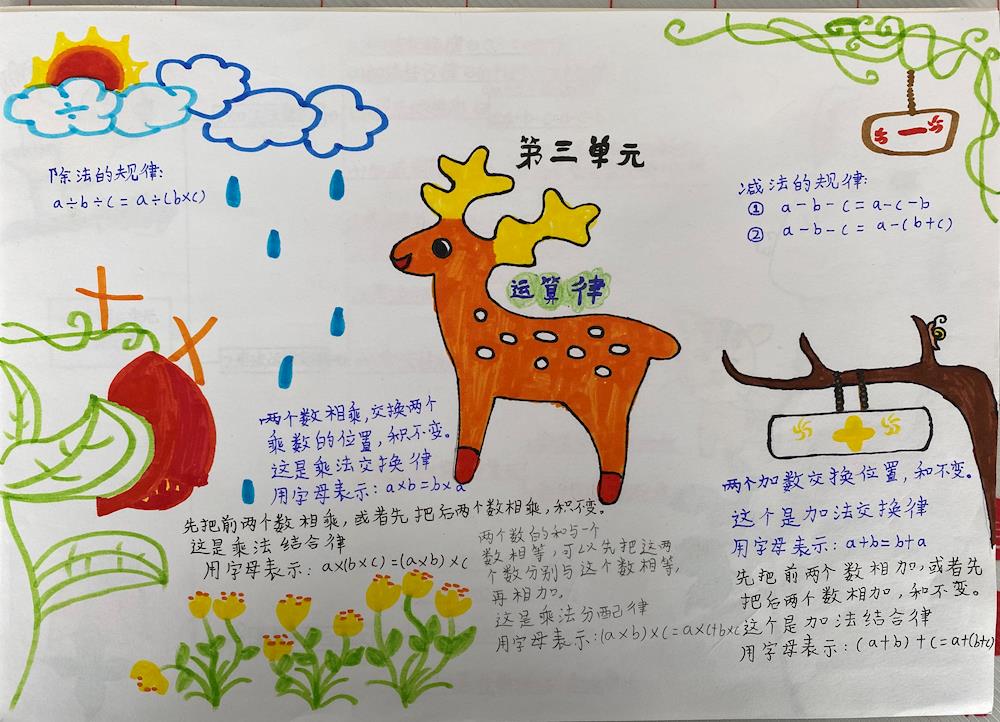 第三单元
运算律
除法的规律:
a÷b÷c=a÷(b×c)
减法的规律:
① a-b-c=a-c-b
② a-b-c=a-(b+c)
两个数相乘,交换两个
乘数的位置,积不变。
这是乘法交换律
用字母表示:a×b=b×a
先把前两个数相乘,或者先把后两个数相乘,积不变。
这是乘法结合律
用字母表示:a×(b×c)=(a×b)×c
两个数的的和与一个
数相等,可以先把这两
个数分别与这个数相等,
再相加。
这是乘法分配律
用字母表示:(a×b)×c=a×c+b×c
两个加数交换位置,和不变。
这个是加法交换律
用字母表示:a+b=b+a
先把前两个数相加,或者先
把后两个数相加,和不变。
这个是加法结合律
用字母表示:(a+b)+c=a+(b+c)